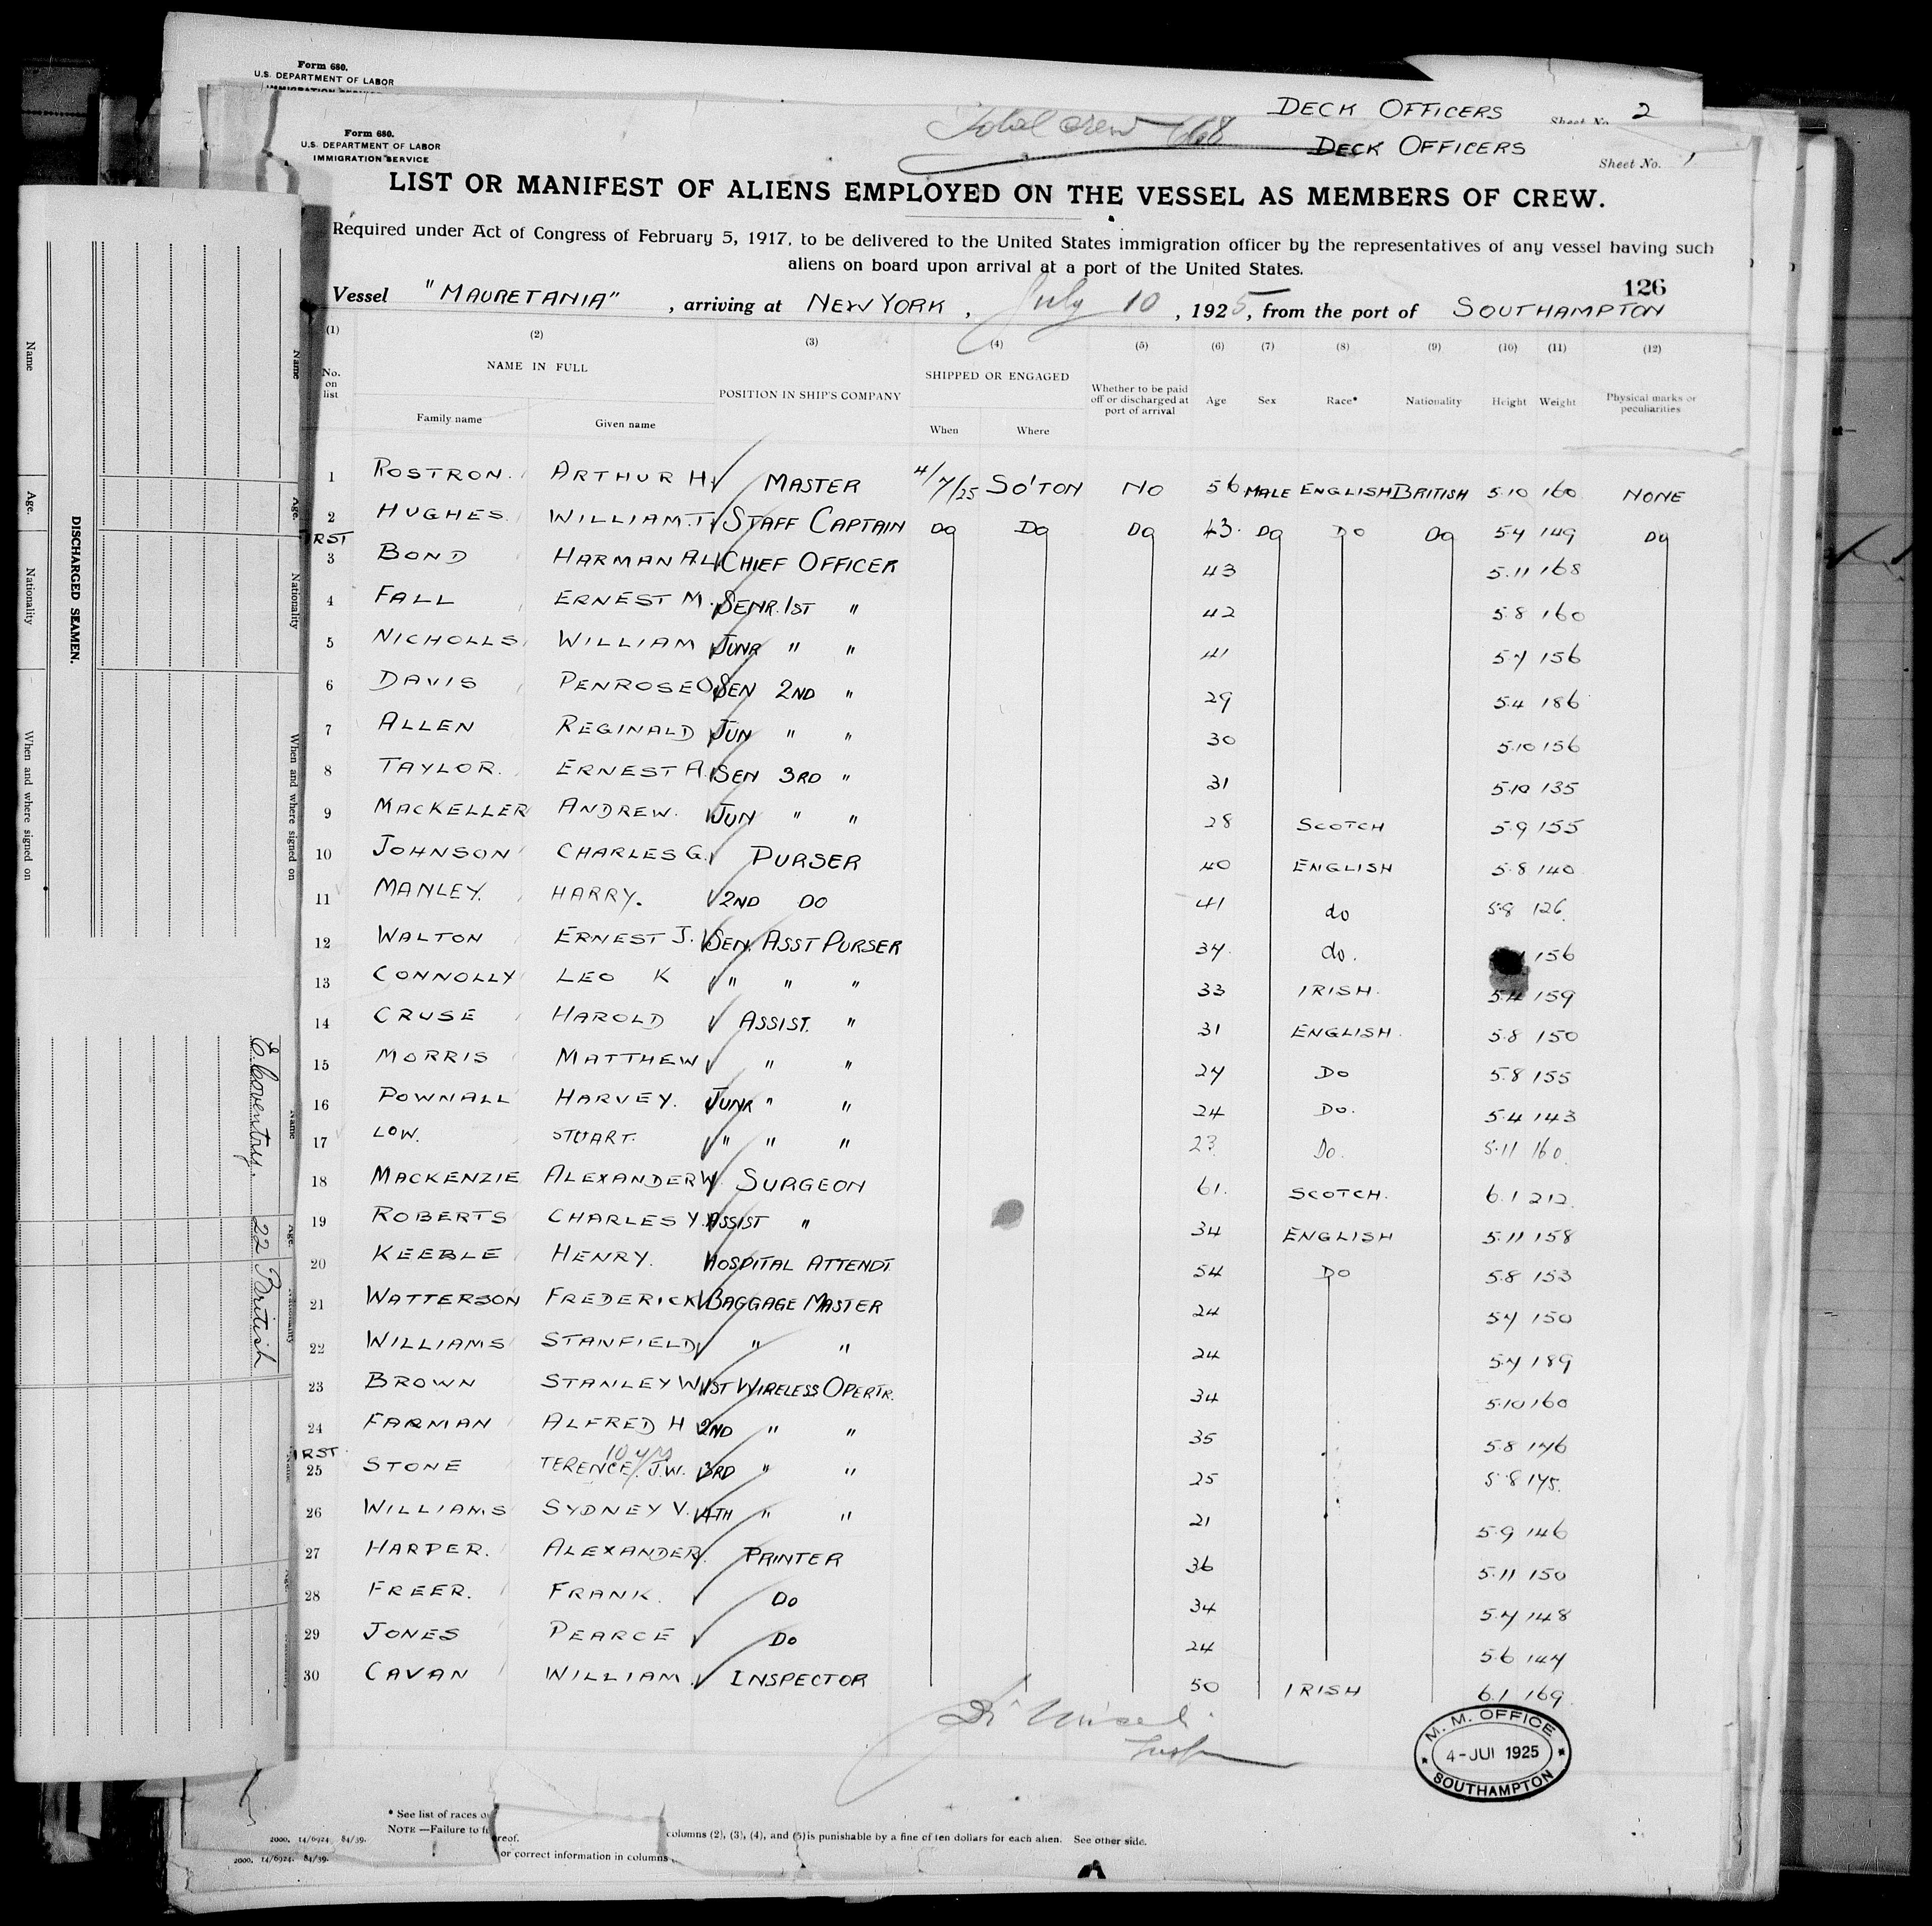 Form 680.
U.S. DEPARTMENT OF LABOR
DECK OFFICERS 2
Sheet No.
Total Crew 668
Form 680.
U.S. DEPARTMENT OF LABOR
IMMIGRATION SERVICE
DECK OFFICERS
Sheet No. 1
LIST OR MANIFEST OF ALIENS EMPLOYED ON THE VESSEL AS MEMBERS OF CREW.
Required under Act of Congress of February 5, 1917, to be delivered to the United States immigration officer by the representatives of any vessel having such
aliens on board upon arrival at a port of the United States.
126
Vessel "MAURETANIA", arriving at NEW YORK, July 10, 1925, from the port of SOUTHAMPTON
(1) (2) (3) (4) (5) (6) (7) (8) (9) (10) (11) (12)
No. on list NAME IN FULL POSITION IN SHIP'S COMPANY SHIPPED OR ENGAGED Whether to be paid off or discharged at port of arrival Age Sex Race* Nationality Height Weight Physical marks or peculiarities
Family name Given name When Where
1 ROSTRON. ARTHUR H. MASTER 4/7/25 SO'TON NO 56 MALE ENGLISH BRITISH 5.10 160 NONE
2 HUGHES. WILLIAM.T. STAFF CAPTAIN DO DO DO 43. DO DO DO 5.7 149 DO
3 BOND HARMAN A.L. CHIEF OFFICER 43 5.11 168
4 FALL ERNEST M. SENR. 1ST " 42 5.8 160
5 NICHOLLS WILLIAM JUNR " " 41 5.7 156
6 DAVIS PENROSE O. SEN 2ND " 29 5.4 186
7 ALLEN REGINALD JUN " " 30 5.10 156
8 TAYLOR. ERNEST A. SEN 3RD " 31 5.10 135
9 MACKELLER ANDREW. JUN " " 28 SCOTCH 5.9 155
10 JOHNSON CHARLES G. PURSER 40 ENGLISH 5.8 140
11 MANLEY. HARRY. 2ND DO 41 do 5.8 126.
12 WALTON ERNEST J. SEN. ASST PURSER 34. do. 156
13 CONNOLLY LEO K " " " 33 IRISH. 159
14 CRUSE HAROLD ASSIST. " 31 ENGLISH. 5.8 150
15 MORRIS MATTHEW " " 27 DO 5.8 155
16 POWNALL HARVEY. JUNR " " 24 DO. 5.4 143
17 LOW. STUART. " " " 23. Do. 5.11 160.
18 MACKENZIE ALEXANDER W. SURGEON 61. SCOTCH. 6.1 212
19 ROBERTS CHARLES Y. ASSIST " 34 ENGLISH 5.11 158
20 KEEBLE HENRY. HOSPITAL ATTENDT. 54 DO 5.8 153
21 WATTERSON FREDERICK BAGGAGE MASTER 24 5.7 150
22 WILLIAMS STANFIELD " " 24 5.7 189
23 BROWN STANLEY W. 1ST WIRELESS OPERTR. 34 5.10 160
24 FARMAN ALFRED H 2ND " " 35 5.8 146
25 STONE TERENCE. J.W. 3RD " " 25 5.8 175.
26 WILLIAMS SYDNEY V. 4TH " " 21 5.9 146
27 HARPER. ALEXANDER. PRINTER 36 5.11 150
28 FREER. FRANK. DO 34 5.7 148
29 JONES PEARCE DO 24 5.6 147
30 CAVAN WILLIAM. INSPECTOR 50 IRISH 6.1 169.
M. M. OFFICE
4 - JUL 1925
SOUTHAMPTON
* See list of races o
NOTE —Failure to f
ereof.
columns (2), (3), (4), and (5) is punishable by a fine of ten dollars for each alien. See other side.
or correct information in columns
2000. 14/6924. 84/39.
2000. 14/6924. 84/39.
DISCHARGED SEAMEN.
Name Age. Nationality When and where signed on
Name Age. Nationality When and where signed on
E. Coventry. 22 British